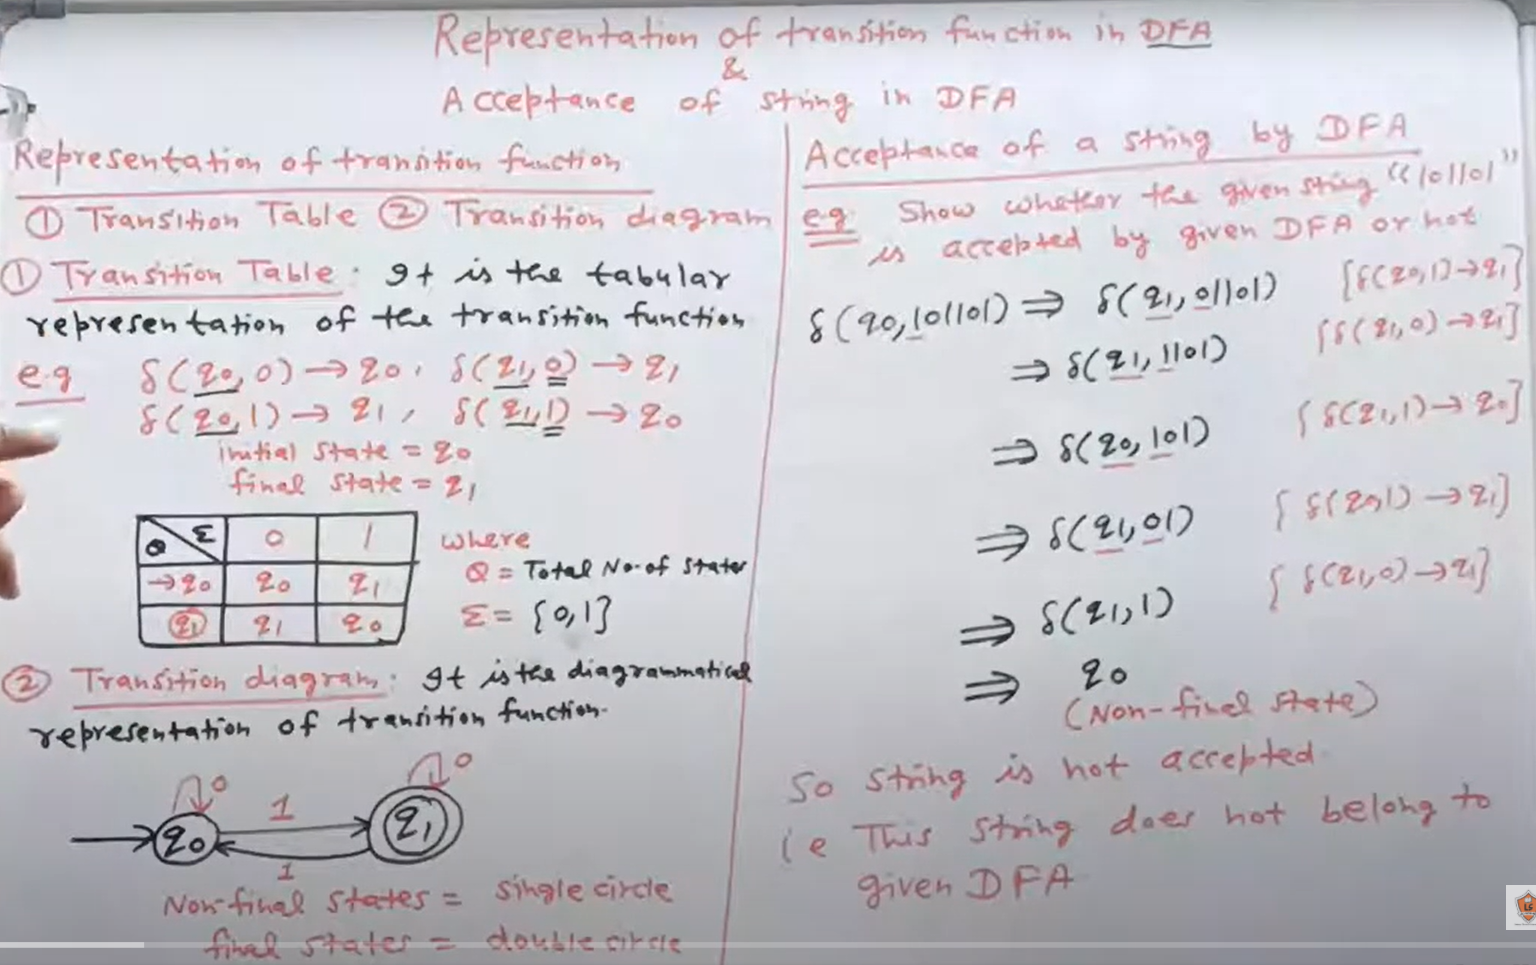 Representation of transition function in DFA
&
Acceptance of string in DFA
Representation of transition function
① Transition Table ② Transition diagram
① Transition Table: It is the tabular
representation of the transition function
e.g δ(q0, 0) → q0, δ(q1, 0) → q1
δ(q0, 1) → q1, δ(q1, 1) → q0
initial state = q0
final state = q1
Q Σ 0 1
→q0 q0 q1
q1 q1 q0
where
Q = Total No. of states
Σ = {0,1}
② Transition diagram: It is the diagrammatical
representation of transition function.
0 0
1
q0 q1
1
Non-final states = single circle
final states = double circle
Acceptance of a string by DFA
e.g. Show whether the given string "101101"
is accepted by given DFA or not
δ(q0, 101101) ⇒ δ(q1, 01101) [δ(q0,1)→q1]
⇒ δ(q1, 1101) {δ(q1,0)→q1]
⇒ δ(q0, 101) {δ(q1,1)→q0]
⇒ δ(q1, 01) {δ(q0,1)→q1]
⇒ δ(q1, 1) {δ(q1,0)→q1]
⇒ q0
(Non-final state)
So string is not accepted.
i.e This string does not belong to
given DFA